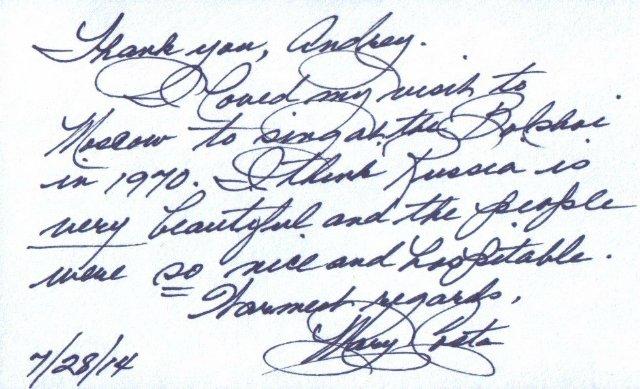 Thank you, Andrey.
I loved my visit to
Moscow to sing at the Bolshoi
in 1970. I think Russia is
very beautiful and the people
were so nice and hospitable.
Warmest regards,
Mary Costa
7/28/14